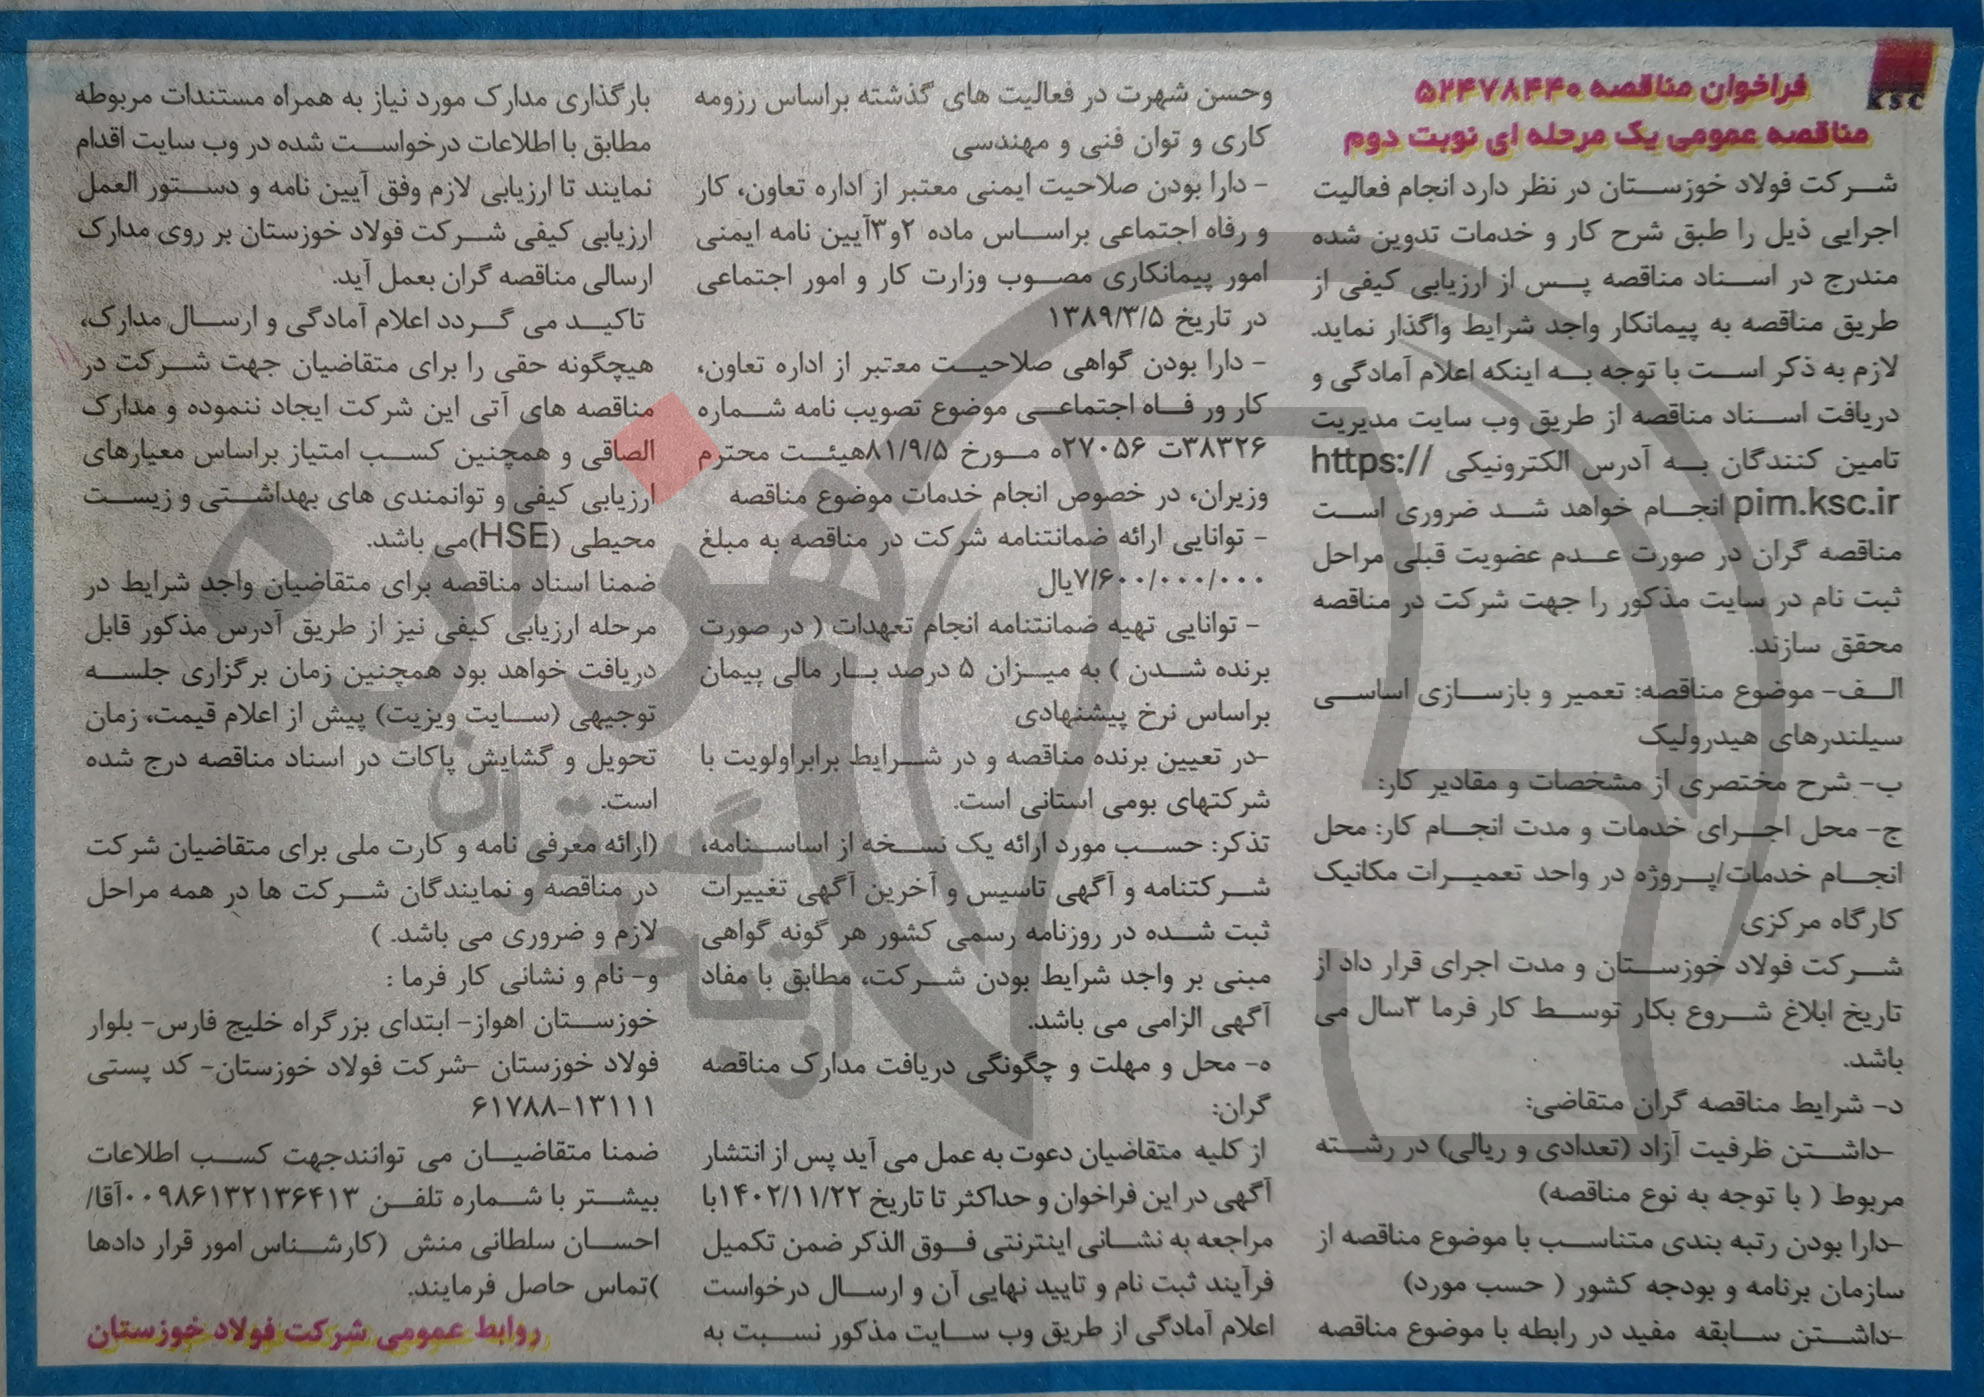 KSC
فراخوان مناقصه ۵۲۴۷۸۴۴۰
مناقصه عمومی یک مرحله ای نوبت دوم
شرکت فولاد خوزستان در نظر دارد انجام فعالیت
اجرایی ذیل را طبق شرح کار و خدمات تدوین شده
مندرج در اسناد مناقصه پس از ارزیابی کیفی از
طریق مناقصه به پیمانکار واجد شرایط واگذار نماید.
لازم به ذکر است با توجه به اینکه اعلام آمادگی و
دریافت اسناد مناقصه از طریق وب سایت مدیریت
تامین کنندگان به آدرس الکترونیکی https://
pim.ksc.ir انجام خواهد شد ضروری است
مناقصه گران در صورت عدم عضویت قبلی مراحل
ثبت نام در سایت مذکور را جهت شرکت در مناقصه
محقق سازند.
الف- موضوع مناقصه: تعمیر و بازسازی اساسی
سیلندرهای هیدرولیک
ب- شرح مختصری از مشخصات و مقادیر کار:
ج- محل اجرای خدمات و مدت انجام کار: محل
انجام خدمات/پروژه در واحد تعمیرات مکانیک
کارگاه مرکزی
شرکت فولاد خوزستان و مدت اجرای قرار داد از
تاریخ ابلاغ شروع بکار توسط کار فرما ۳سال می
باشد.
د- شرایط مناقصه گران متقاضی:
-داشتن ظرفیت آزاد (تعدادی و ریالی) در رشته
مربوط ( با توجه به نوع مناقصه)
-دارا بودن رتبه بندی متناسب با موضوع مناقصه از
سازمان برنامه و بودجه کشور ( حسب مورد)
-داشتن سابقه مفید در رابطه با موضوع مناقصه
وحسن شهرت در فعالیت های گذشته براساس رزومه
کاری و توان فنی و مهندسی
- دارا بودن صلاحیت ایمنی معتبر از اداره تعاون، کار
و رفاه اجتماعی براساس ماده ۲و۳آیین نامه ایمنی
امور پیمانکاری مصوب وزارت کار و امور اجتماعی
در تاریخ ۱۳۸۹/۳/۵
- دارا بودن گواهی صلاحیت معتبر از اداره تعاون،
کار ور فاه اجتماعی موضوع تصویب نامه شماره
۳۸۳۲۶ت ۲۷۰۵۶ه مورخ ۸۱/۹/۵هیئت محترم
وزیران، در خصوص انجام خدمات موضوع مناقصه
- توانایی ارائه ضمانتنامه شرکت در مناقصه به مبلغ
۷/۶۰۰/۰۰۰/۰۰۰یال
- توانایی تهیه ضمانتنامه انجام تعهدات ( در صورت
برنده شدن ) به میزان ۵ درصد بار مالی پیمان
براساس نرخ پیشنهادی
-در تعیین برنده مناقصه و در شرایط برابراولویت با
شرکتهای بومی استانی است.
تذکر: حسب مورد ارائه یک نسخه از اساسنامه،
شرکتنامه و آگهی تاسیس و آخرین آگهی تغییرات
ثبت شده در روزنامه رسمی کشور هر گونه گواهی
مبنی بر واجد شرایط بودن شرکت، مطابق با مفاد
آگهی الزامی می باشد.
ه- محل و مهلت و چگونگی دریافت مدارک مناقصه
گران:
از کلیه متقاضیان دعوت به عمل می آید پس از انتشار
آگهی در این فراخوان و حداکثر تا تاریخ ۱۴۰۲/۱۱/۲۲با
مراجعه به نشانی اینترنتی فوق الذکر ضمن تکمیل
فرآیند ثبت نام و تایید نهایی آن و ارسال درخواست
اعلام آمادگی از طریق وب سایت مذکور نسبت به
بارگذاری مدارک مورد نیاز به همراه مستندات مربوطه
مطابق با اطلاعات درخواست شده در وب سایت اقدام
نمایند تا ارزیابی لازم وفق آیین نامه و دستور العمل
ارزیابی کیفی شرکت فولاد خوزستان بر روی مدارک
ارسالی مناقصه گران بعمل آید.
تاکید می گردد اعلام آمادگی و ارسال مدارک،
هیچگونه حقی را برای متقاضیان جهت شرکت در
مناقصه های آتی این شرکت ایجاد ننموده و مدارک
الصاقی و همچنین کسب امتیاز براساس معیارهای
ارزیابی کیفی و توانمندی های بهداشتی و زیست
محیطی (HSE)می باشد.
ضمنا اسناد مناقصه برای متقاضیان واجد شرایط در
مرحله ارزیابی کیفی نیز از طریق آدرس مذکور قابل
دریافت خواهد بود همچنین زمان برگزاری جلسه
توجیهی (سایت ویزیت) پیش از اعلام قیمت، زمان
تحویل و گشایش پاکات در اسناد مناقصه درج شده
است.
(ارائه معرفی نامه و کارت ملی برای متقاضیان شرکت
در مناقصه و نمایندگان شرکت ها در همه مراحل
لازم و ضروری می باشد. )
و- نام و نشانی کار فرما :
خوزستان اهواز- ابتدای بزرگراه خلیج فارس- بلوار
فولاد خوزستان -شرکت فولاد خوزستان- کد پستی
۶۱۷۸۸-۱۳۱۱۱
ضمنا متقاضیان می توانندجهت کسب اطلاعات
بیشتر با شماره تلفن ۰۰۹۸۶۱۳۲۱۳۶۴۱۳آقا/
احسان سلطانی منش (کارشناس امور قرار دادها
)تماس حاصل فرمایند.
روابط عمومی شرکت فولاد خوزستان